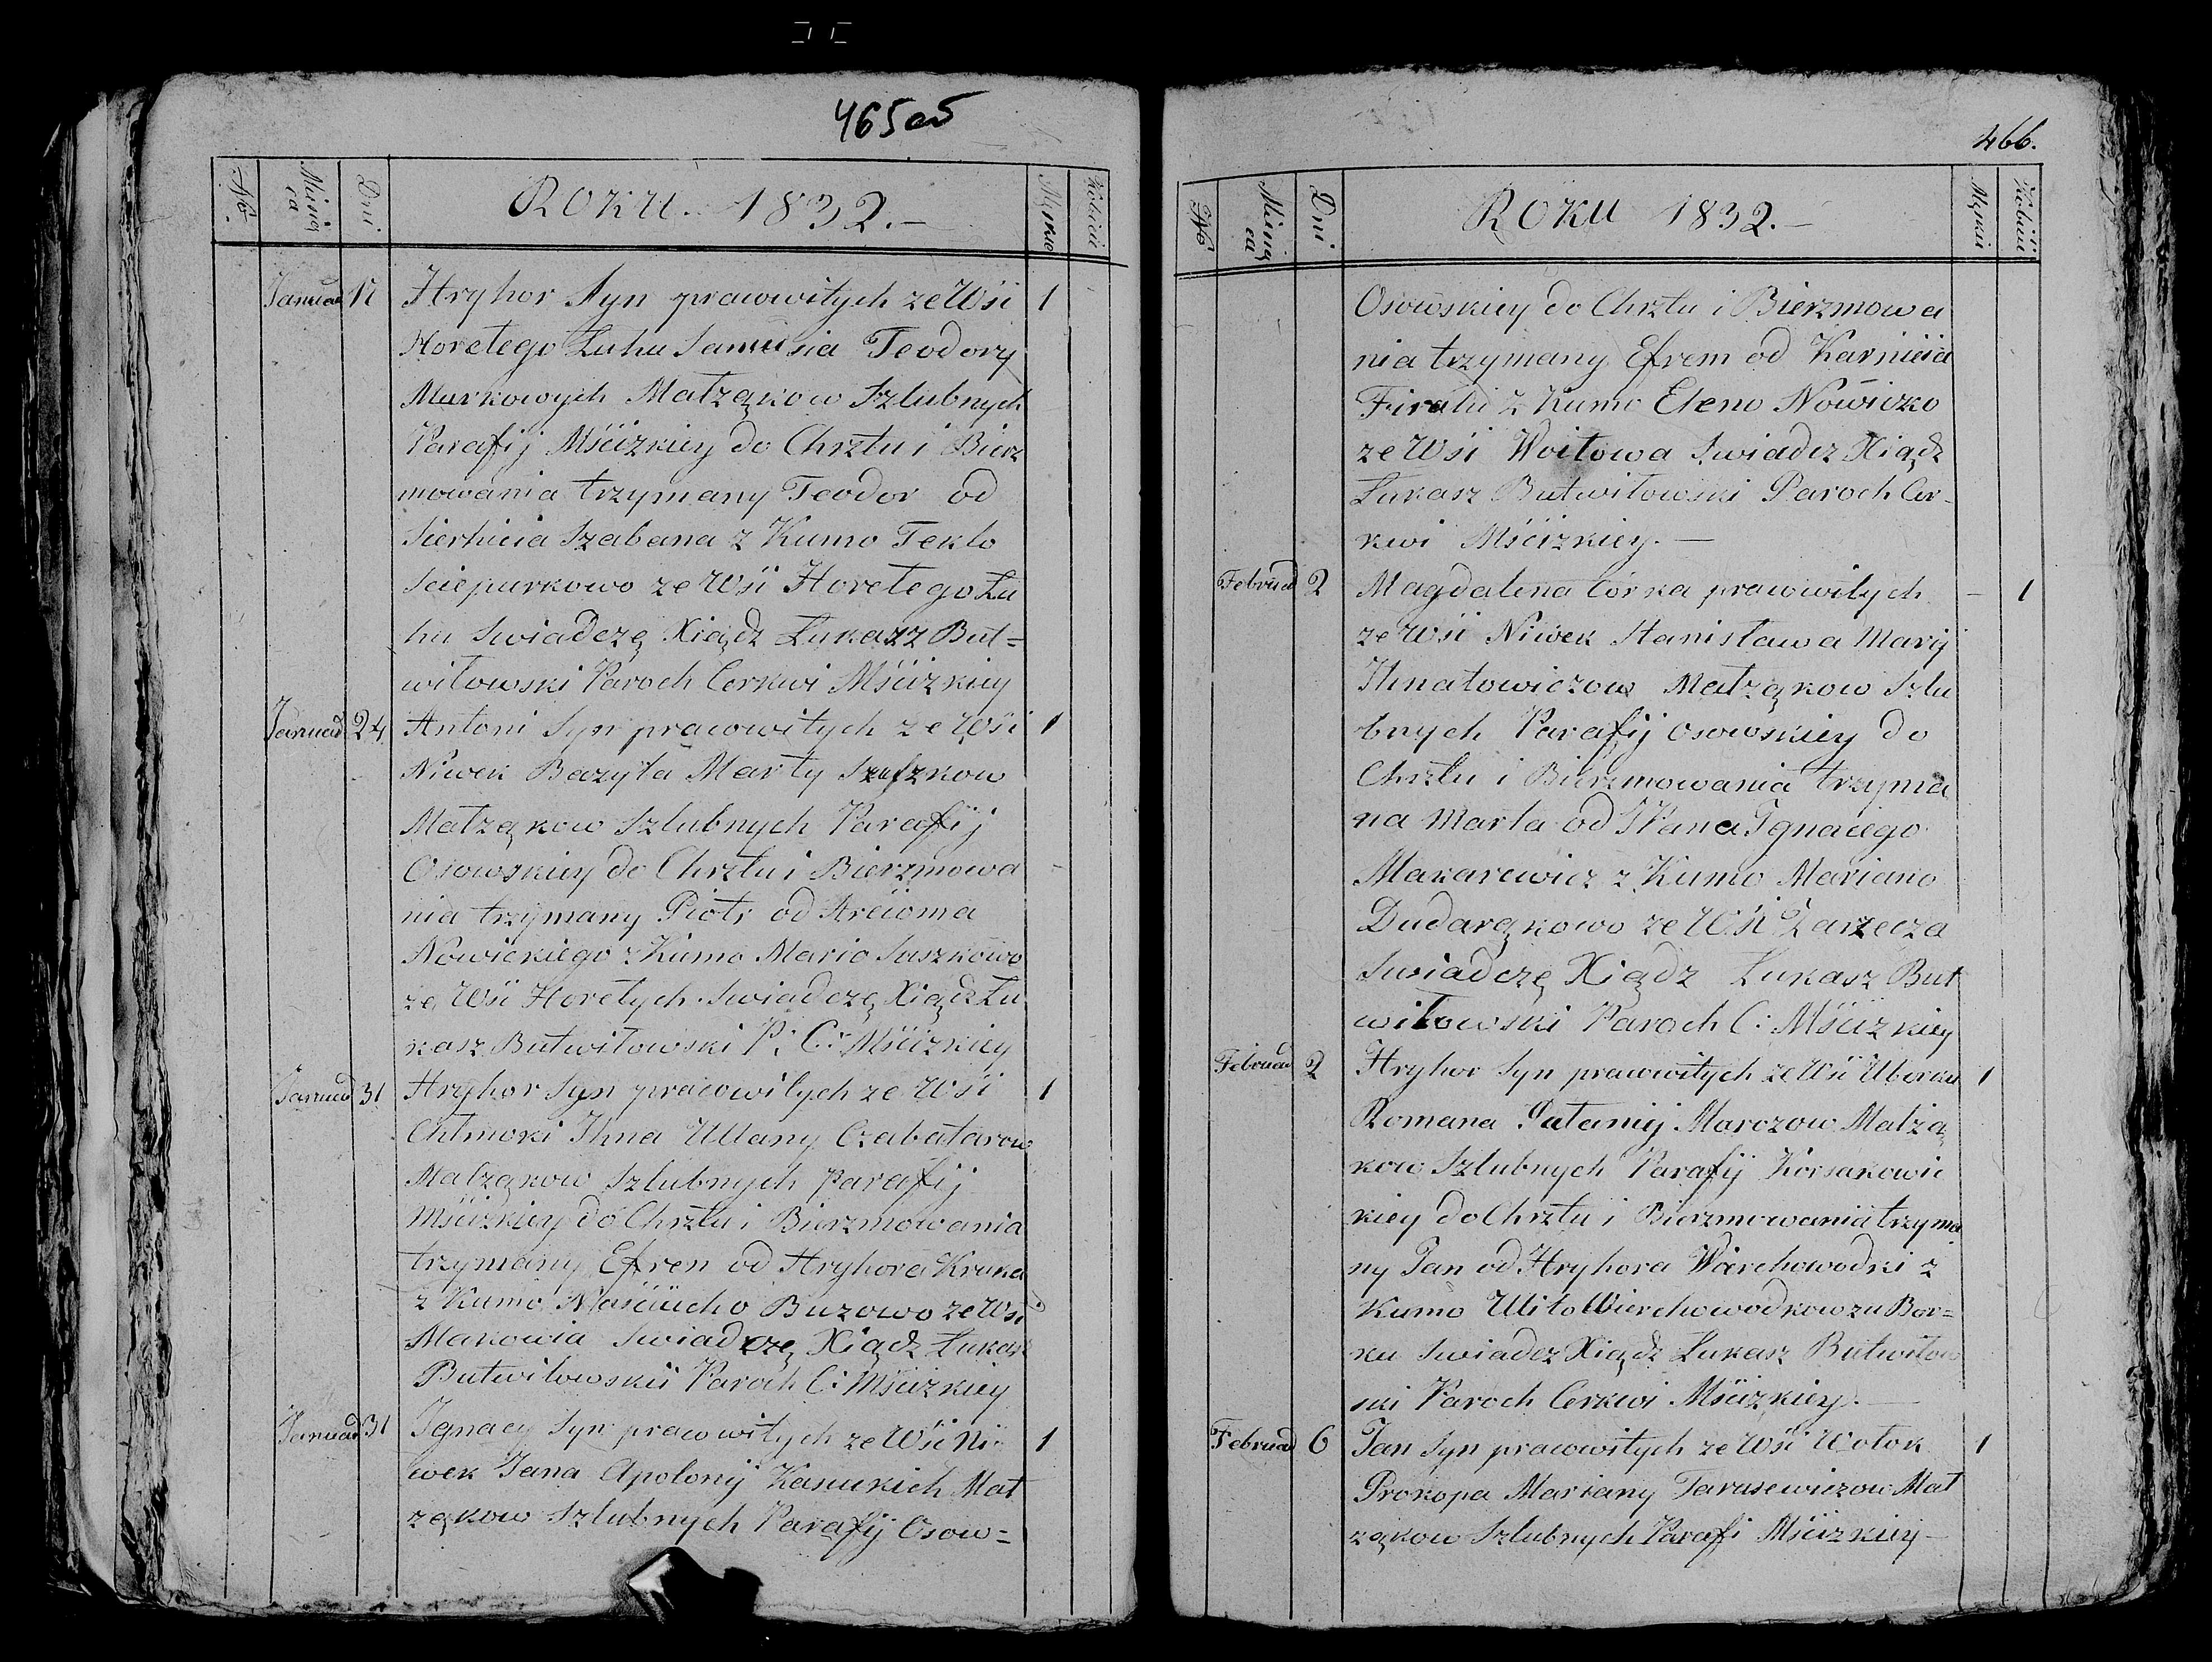 465 об
No.
Miesią
ca
Dni
ROKU. 1832.—
Męskie
Kobieta
Januar 17 Hryhor Syn prawowitych ze Wśi 1
Horełego Łuhu Samusia Teodory
Murkowych Małżąkow Szlubnych
Parafij Mścizkiey do Chrztu i Bierz
mowania trzymany Teodor od
Sierhieia Szabana z Kumo Teklo
Sciepurkowo ze Wśi Horełego Łu
hu Swiadczę Xiądz Łukasz But=
wiłowski Paroch Cerkwi Mścizkiey
Januar 24. Antoni Syn prawowitych ze Wśi 1
Niwek Bazyła Marty
Małżąkow Szlubnych Parafij
Osowskiey do Chrztu i Bierzmowa
nia trzymany Piotr od Arcioma
Nowickiego z Kumo Mario Suszkowo
ze Wśi Horełych Swiadczę Xiądz Łu
kasz Butwiłowski P: C: Mścizkiey
Januar 31 Hryhor Syn prawowitych ze Wśi 1
Chimori Ihna Ullany Czabatarow
Małżąkow Szlubnych parafij
Mścizkiey do Chrztu i Bierzmowania
trzymany Efren od Hryhora Kruka
z Kumo Naściucho Buzowo ze Wśi
Makowia Swiadczę Xiądz Łukasz
Butwiłowskii Paroch C: Mścizkiey
Januar 31 Ignacy Syn prawowitych ze Wśi Ni- 1
wek Jana Apolonij Kasukich Mał
żąkow Szlubnych Parafij Osow=
466.
No
Miesią
ca
Dni
ROKU 1832.—
Męskie
Kobieta
Osowskiey do Chrztu i Bierzmowa
nia trzymany Efrem od Karnieia
z Kumo Eleno Nowicko
ze Wśi Woitowa Swiadcz Xiądz
Łukasz Butwiłowski Paroch Cer-
kwi Mścizkiey.—
Februar 2 Magdalena Córka prawowitych — 1
ze Wśi Niwek Stanisława Marij
Ihnatowiczow Małżąkow Szlu
bnych Parafij Osowskiey do
Chrztu i Bierzmowania trzyma
na Marta od JPana Ignacego
Makarewicz z Kumo Mariano
Dudarąkowo ze Wśi Zarzecza
Swiadczę Xiądz Łukasz But
wiłowski Paroch C: Mścizkiey
Februar 2 Hryhor Syn prawowitych ze Wśi Uborku 1
Romana Patamij Marozow Małżą
kow Szlubnych Parafij Korsakowic
kiey do Chrztu i Bierzmowania trzyma
ny Jan od Hryhora Wierchowodki z
Kumo Ulito Wierchowodkow zu Bor=
ku Swiadcz Xiądz Łukasz Butwiłow
ski Paroch Cerkwi Mścizkiey.—
Februar 6 Jan Syn prawowitych ze Wśi Wołok 1
Prokopa Mariany Tarasewiczow Mał
żąkow Szlubnych Parafi Mścizkiey—